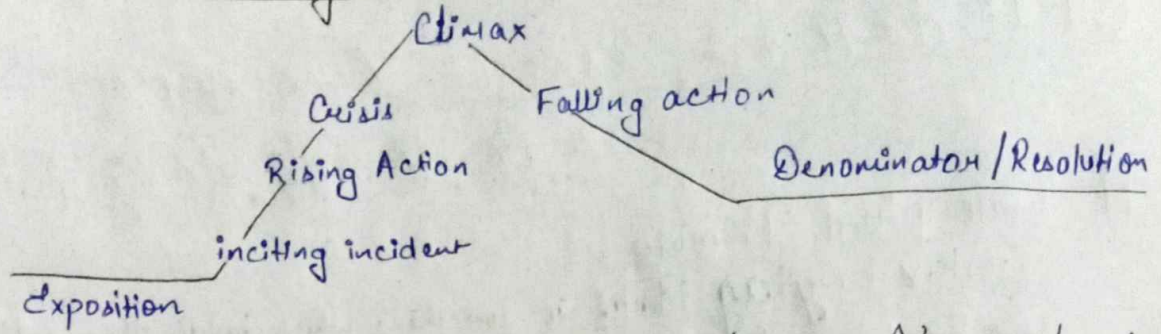 Climax
Crisis
Falling action
Rising Action
Denominator/Resolution
inciting incident
Exposition